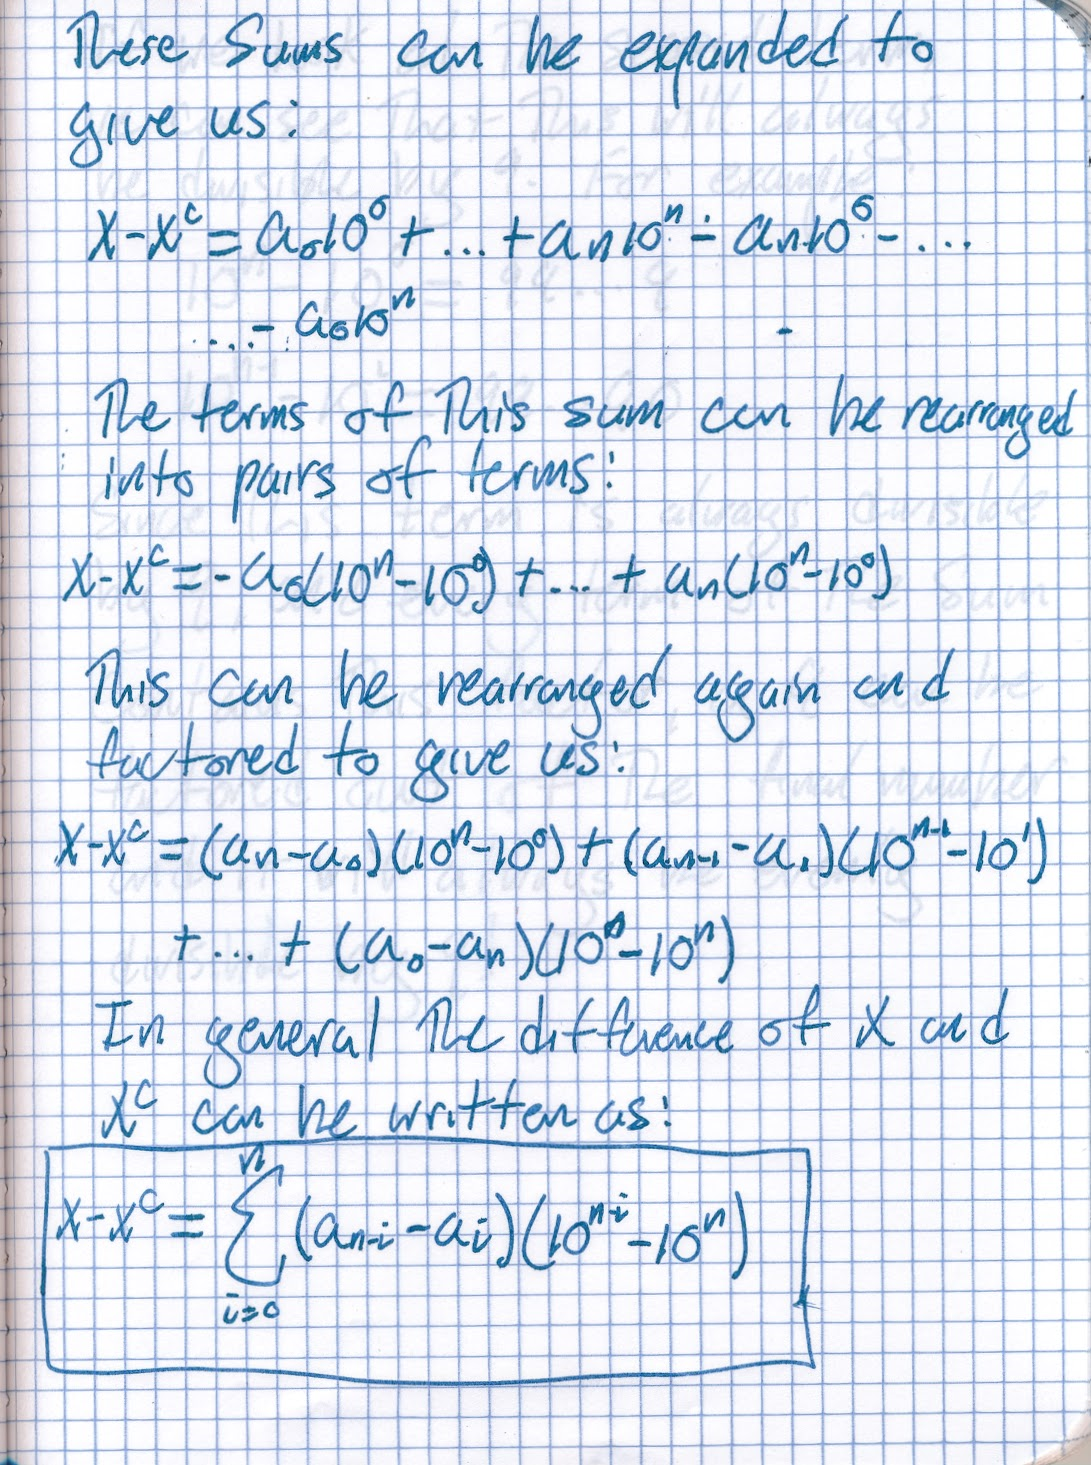 These Sums can be expanded to
give us:
x-x^c = a₀10⁰ + ... + aₙ10ⁿ - aₙ10⁰ - ...
...- a₀10ⁿ
The terms of This sum can be rearranged
into pairs of terms:
x-x^c = -a₀(10ⁿ-10⁰) + ... + aₙ(10ⁿ-10⁰)
This can be rearranged again and
factored to give us:
x-x^c = (aₙ-a₀)(10ⁿ-10⁰) + (aₙ₋₁-a₁)(10ⁿ⁻¹-10¹)
+ ... + (a₀-aₙ)(10⁰-10ⁿ)
In general The difference of x and
x^c can be written as:
x-x^c = ∑_{i=0}^{n} (a_{n-i} - a_i)(10^{n-i} - 10^n)